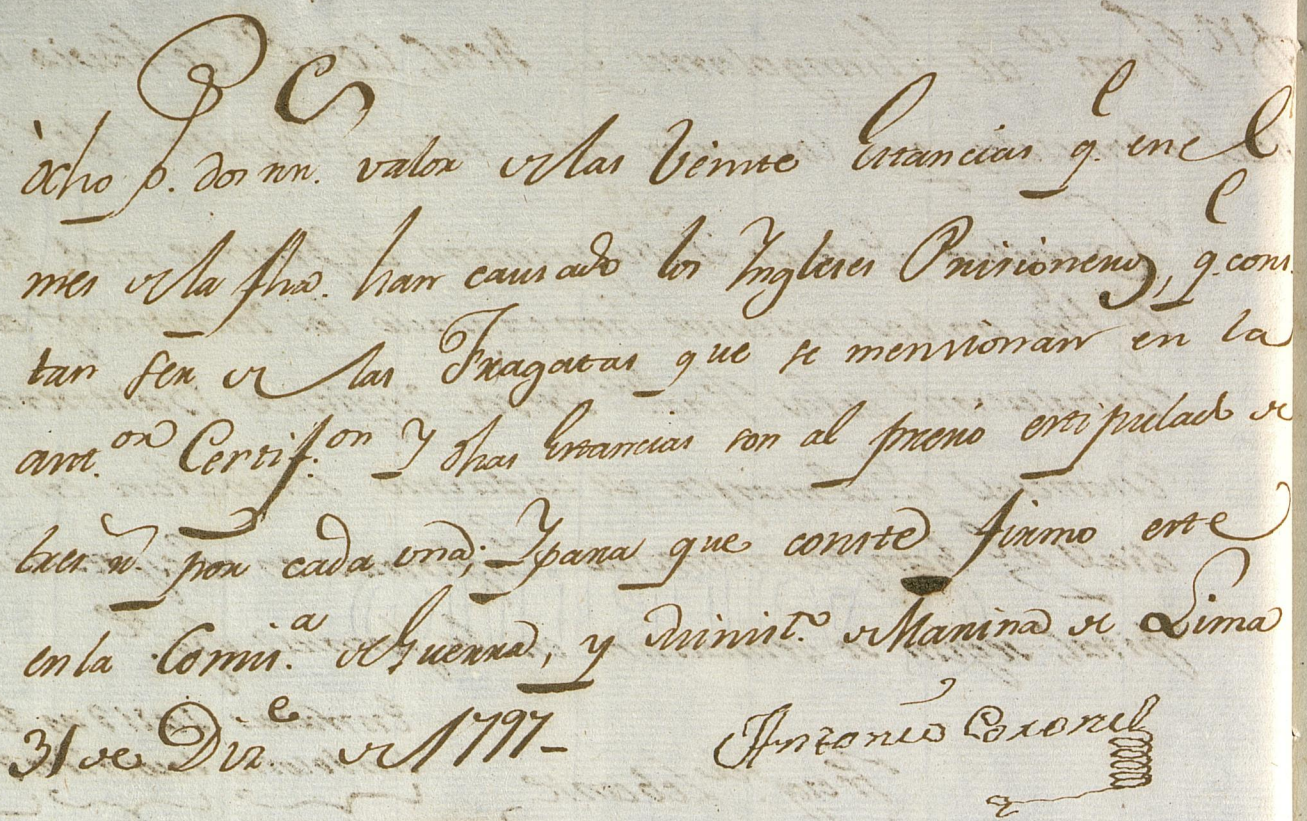 ocho p.s dos rr.s valor de las Veinte Estancias q.e en el
mes de la fha. han causado los Yngleses Prisioneros, q.e cons
tan ser de las Fragatas que se mencionan en la
ant.on Certif.on y dhas Estancias son al precio estipulado de
tres r.s por cada una; Y para que conste firmo este
en la Comis.a de Guerra, y Minist.o de Marina de Lima
31 de Diz.e de 1797-
Antonio Coronel